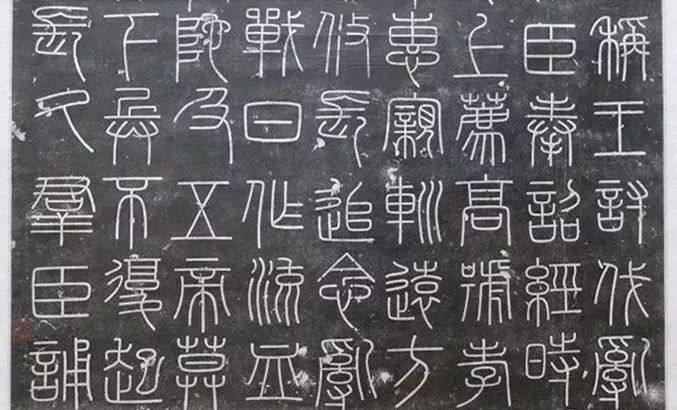 稱王討伐亂
臣奉詔經時
上薦高號孝
惠寴䡅遠方
攸長追念亂
戰日作流血
阤及五帝莫
下兵不復起
長久群臣誦